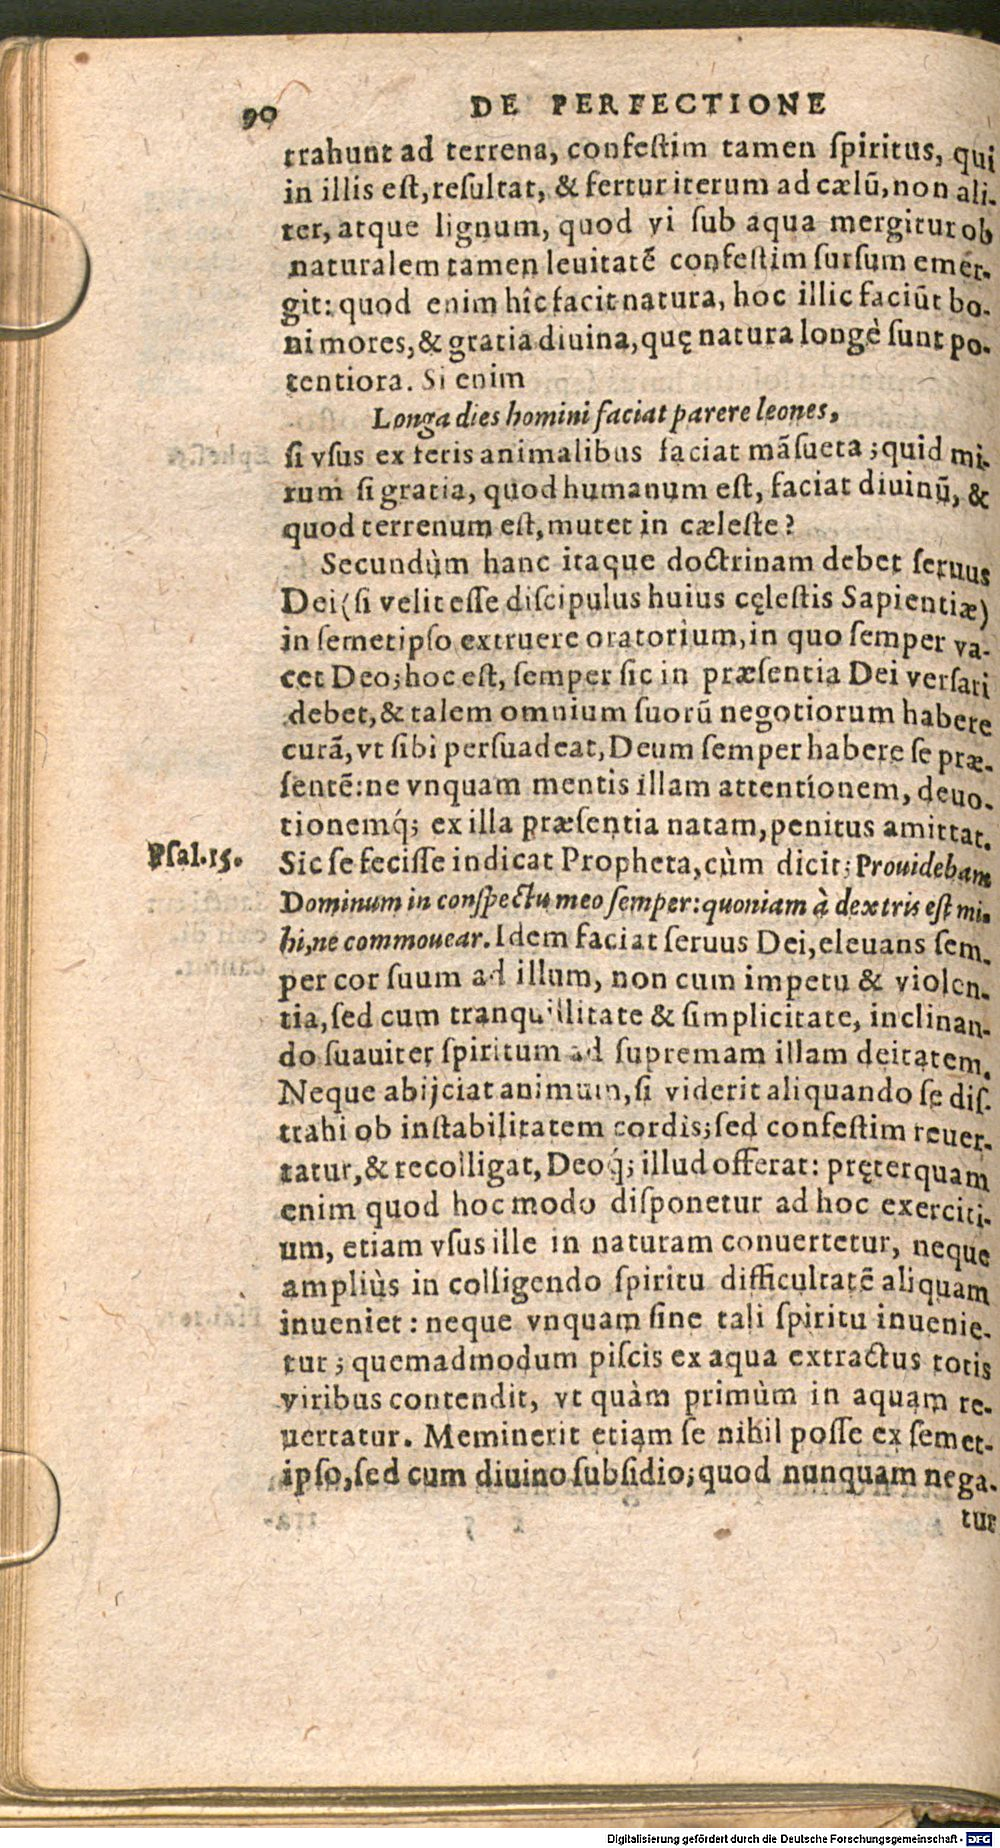 90 DE PERFECTIONE
trahunt ad terrena, confestim tamen ſpiritus, qui
in illis eſt, reſultat, & fertur iterum ad cælū, non ali-
ter, atque lignum, quod vi ſub aqua mergitur ob
naturalem tamen leuitatē confeſtim ſurſum emer-
git: quod enim hîc facit natura, hoc illic faciūt bo-
ni mores, & gratia diuina, quę natura longè ſunt po-
tentiora. Si enim
Longa dies homini faciat parere leones,
ſi vſus ex feris animalibus faciat māſueta; quid mi-
rum ſi gratia, quod humanum eſt, faciat diuinū, &
quod terrenum eſt, mutet in cæleſte?
Secundùm hanc itaque doctrinam debet ſeruus
Dei (ſi velit eſſe diſcipulus huius cęleſtis Sapientiæ)
in ſemetipſo extruere oratorium, in quo ſemper va-
cet Deo; hoc eſt, ſemper ſic in præſentia Dei verſari
debet, & talem omnium ſuorū negotiorum habere
curā, vt ſibi perſuadeat, Deum ſemper habere ſe præ-
ſentē: ne vnquam mentis illam attentionem, deuo-
tionemq́; ex illa præſentia natam, penitus amittat.
Pſal. 15. Sic ſe feciſſe indicat Propheta, cùm dicit; Prouidebam
Dominum in conſpectu meo ſemper: quoniam à dextris eſt mi-
hi, ne commouear. Idem faciat ſeruus Dei, eleuans ſem-
per cor ſuum ad illum, non cum impetu & violen-
tia, ſed cum tranquillitate & ſimplicitate, inclinan-
do ſuauiter ſpiritum ad ſupremam illam deitatem.
Neque abijciat animum, ſi viderit aliquando ſe diſ-
trahi ob inſtabilitatem cordis; ſed confeſtim reuer-
tatur, & recolligat, Deoq́; illud offerat: pręterquam
enim quod hoc modo diſponetur ad hoc exerciti-
um, etiam vſus ille in naturam conuertetur, neque
ampliùs in colligendo ſpiritu difficultatē aliquam
inueniet: neque vnquam ſine tali ſpiritu inuenie-
tur; quemadmodum piſcis ex aqua extractus totis
viribus contendit, vt quàm primùm in aquam re-
uertatur. Meminerit etiam ſe nihil poſſe ex ſemet-
ipſo, ſed cum diuino ſubſidio; quod nunquam nega-
tur
Digitalisierung gefördert durch die Deutsche Forschungsgemeinschaft - DFG